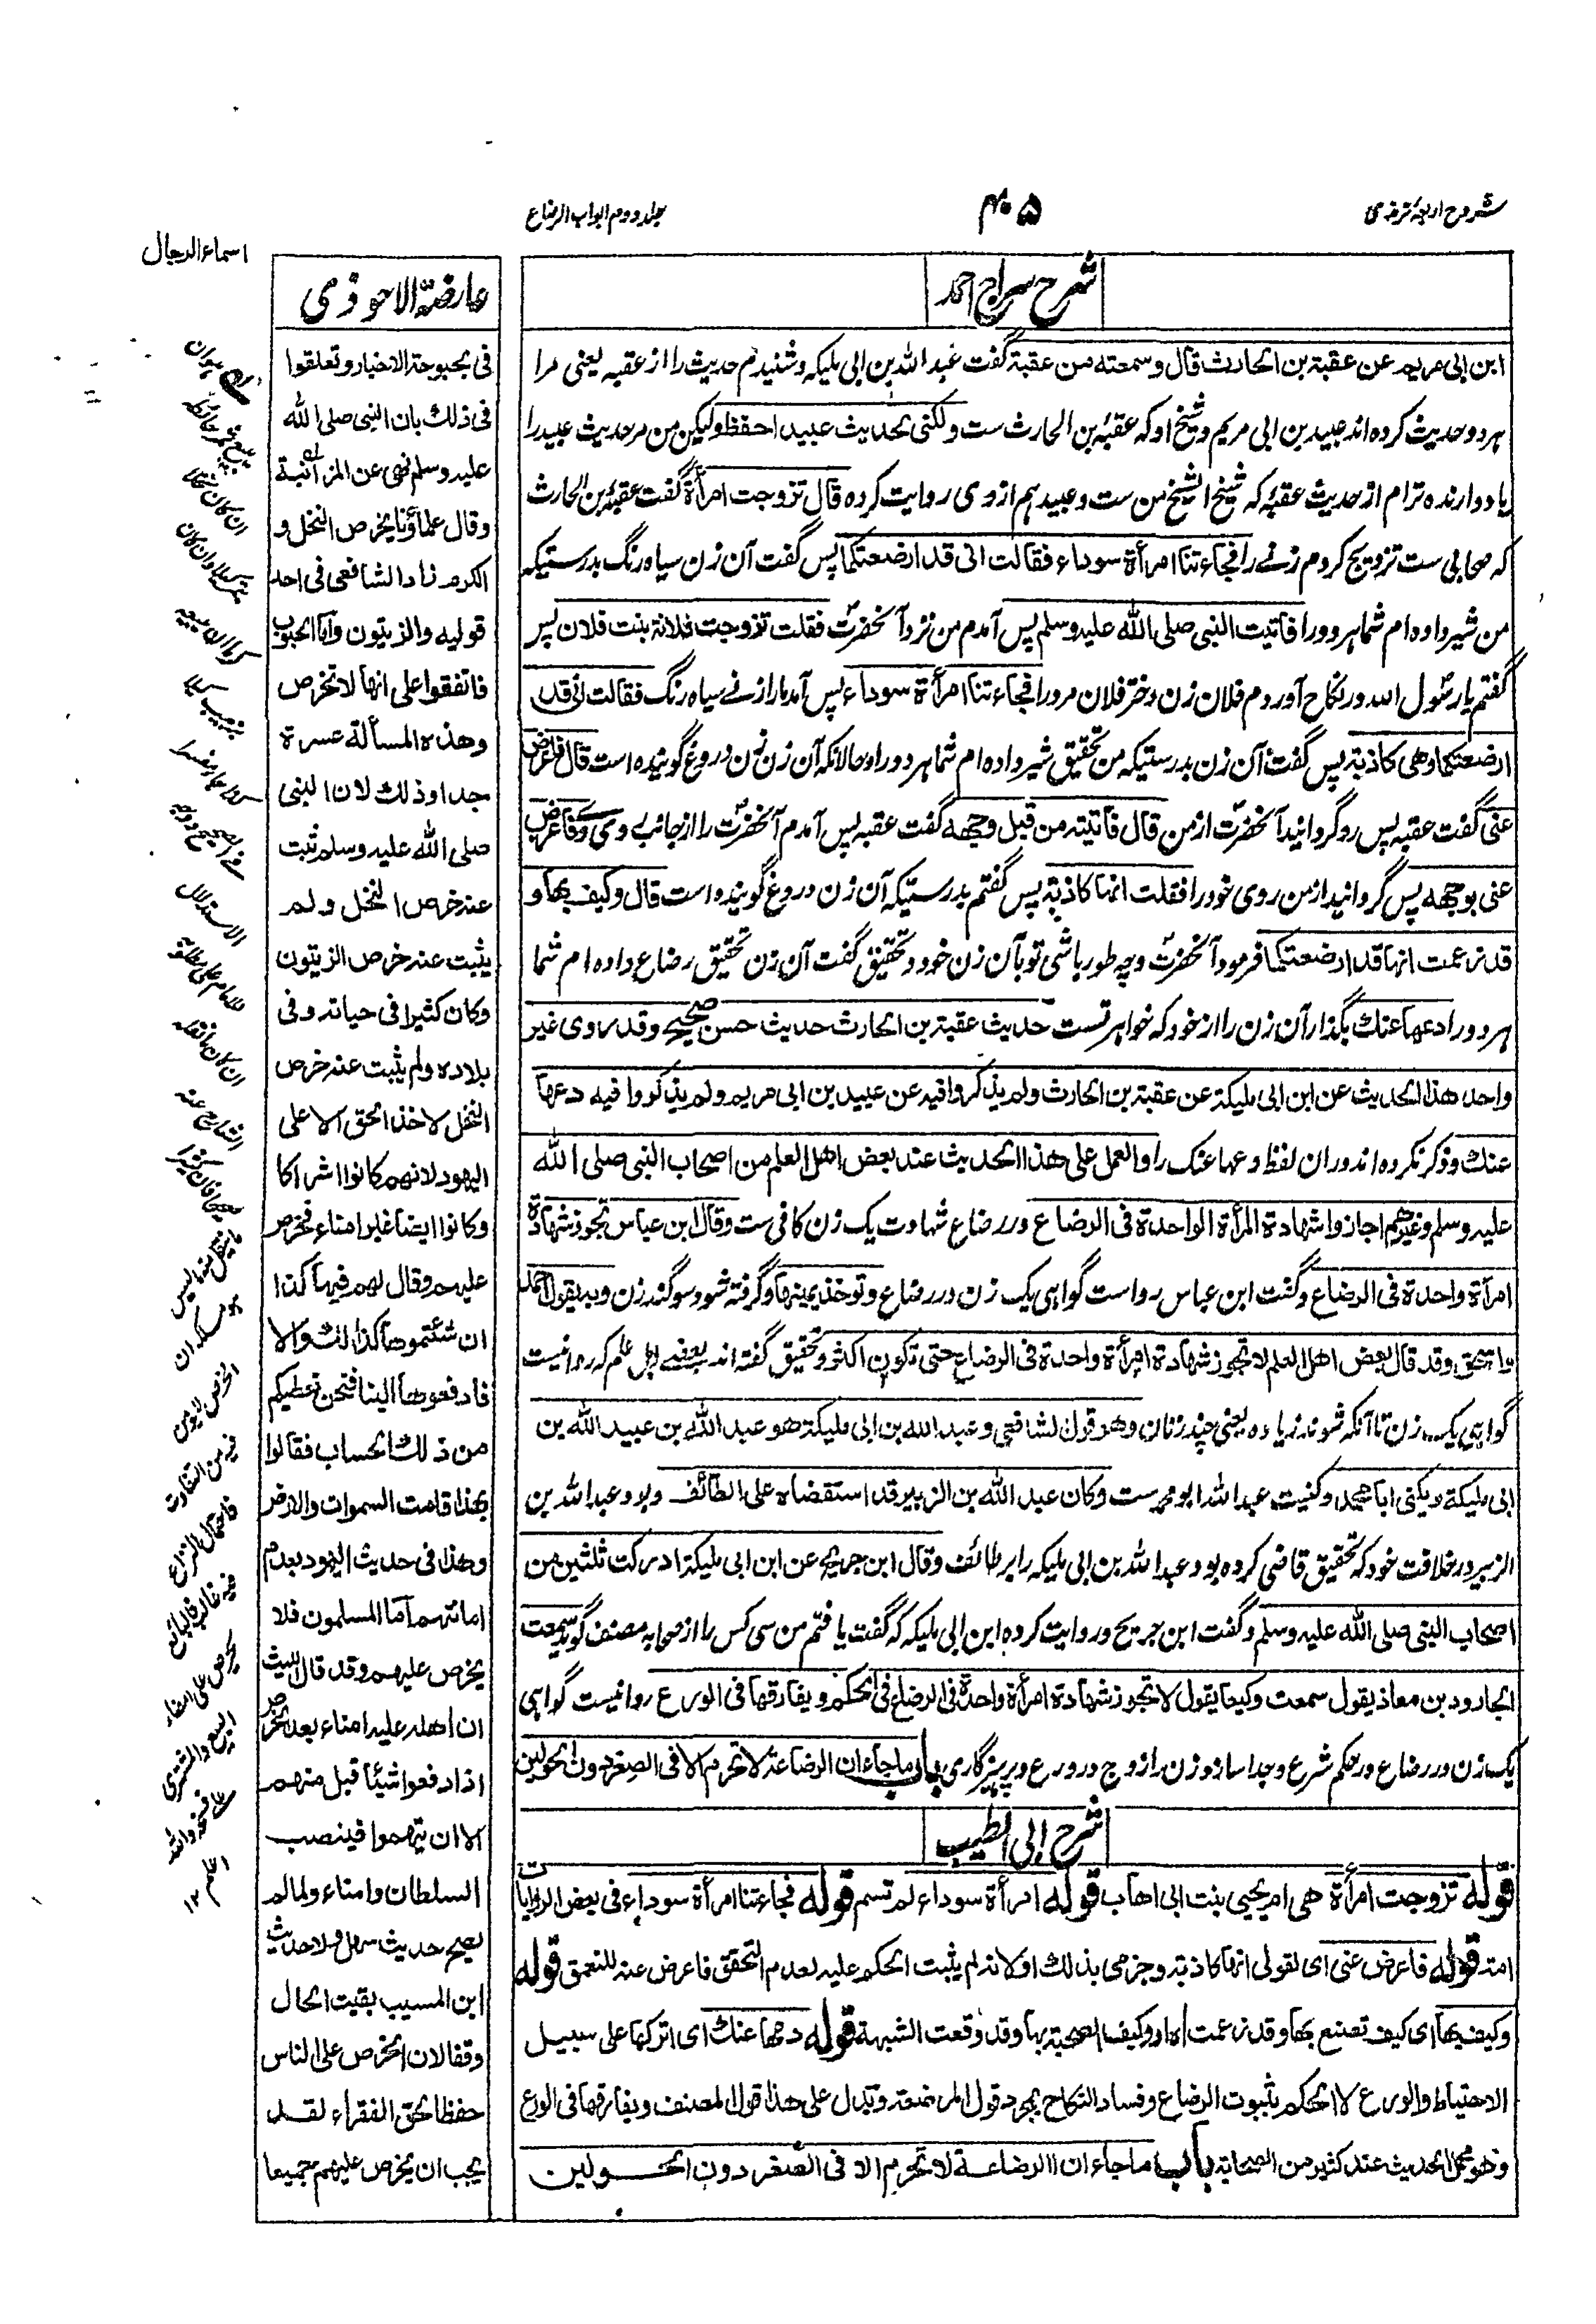 شروح اربعۂ ترمذی
۴۰۵
جلد دوم ابواب الرضاع
شرح سراج احمد
ابن ابی مریم عن عقبة بن الحارث قال وسمعته من عقبة گفت عبد الله بن ابی ملیکه و شنیدم حدیث را از عقبه یعنی مرا
هر دو حدیث کرده اند عبید بن ابی مریم و شیخ او که عقبه بن الحارث ست ولکنی لحدیث عبید احفظ ولیکن من مر حدیث عبید را
یاد دارنده ترام از حدیث عقبه که شیخ الشیخ من ست و عبید هم از وی روایت کرده قال تزوجت امرأة گفت عقبه بن الحارث
که صحابی ست تزویج کردم زنے را فجاءتنا امرأة سوداء فقالت انی قد ارضعتکما پس گفت آن زن سیاه رنگ بدرستیکه
من شیر داده ام شما هر دو را فاتیت النبی صلی الله علیه وسلم پس آمدم من نزد آنحضرتؐ فقلت تزوجت فلانة بنت فلان پس
گفتم یا رسول الله در نکاح آوردم فلان زن دختر فلان مرد را فجاءتنا امرأة سوداء پس آمد مارا زنے سیاه رنگ فقالت انی قد
ارضعتکما وهی کاذبة پس گفت آن زن بدرستیکه من تحقیق شیر داده ام شما هر دو را و حالانکه آن زن دروغ گوینده است قال فاعرض
عنی گفت عقبه پس رو گردانید آنحضرتؐ از من قال فاتیته من قبل وجهه گفت عقبه پس آمدم آنحضرتؐ را از جانب روی وے فاعرض
عنی بوجهه پس گردانید از من روی خود را فقلت انها کاذبة پس گفتم بدرستیکه آن زن دروغ گوینده است قال وکیف بها و
قد زعمت انها قد ارضعتکما فرمود آنحضرتؐ و چه طور باشی تو بآن زن خود و تحقیق گفت آن زن تحقیق رضاع داده ام شما
هر دو را دعها عنک بگذار آن زن را از خود که خواهر تست حدیث عقبة بن الحارث حدیث حسن صحیح وقد روی غیر
واحد هذا الحدیث عن ابن ابی ملیکة عن عقبة بن الحارث ولم یذکروا فیه عن عبید بن ابی مریم ولم یذکروا فیه دعها
عنک و ذکر نکرده اند در ان لفظ دعها عنک را والعمل علی هذا الحدیث عند بعض اهل العلم من اصحاب النبی صلی الله
علیه وسلم وغیرهم اجازوا شهادة المرأة الواحدة فی الرضاع در رضاع شهادت یک زن کافی ست وقال ابن عباس تجوز شهادة
امرأة واحدة فی الرضاع و گفت ابن عباس رواست گواهی یک زن در رضاع وتوخذ یمینها و گرفته شود سوگند زن وبه یقول احمد
واسحق وقد قال بعض اهل العلم لا تجوز شهادة امرأة واحدة فی الرضاع حتی تکون اکثر و تحقیق گفته اند بعضے اهل علم که روا نیست
گواهی یک زن تا آنکه شوند زیاده یعنی چند زنان وهو قول الشافعی وعبد الله بن ابی ملیکة هو عبد الله بن عبید الله بن
ابی ملیکة ویکنی ابا محمد و کنیت عبد الله ابو محمد ست وکان عبد الله بن الزبیر قد استقضاه علی الطائف و بود عبد الله بن
الزبیر در خلافت خود که تحقیق قاضی کرده بود عبد الله بن ابی ملیکه را بر طائف وقال ابن جریج عن ابن ابی ملیکة ادرکت ثلثین من
اصحاب النبی صلی الله علیه وسلم و گفت ابن جریج در روایت کرده ابن ابی ملیکه که گفت یافتم من سی کس را از صحابه مصنف گوید سمعت
الجارود بن معاذ یقول سمعت وکیعا یقول لا تجوز شهادة امرأة واحدة فی الرضاع فی الحکم ویفارقها فی الورع روا نیست گواهی
یک زن در رضاع در حکم شرع و جدا سازد زن را زوج در ورع و پرهیزگاری باب ما جاء ان الرضاعة لا تحرم الا فی الصغر دون الحولین
شرح ابی الطیب
قوله تزوجت امرأة هی ام یحیی بنت ابی اهاب قوله امرأة سوداء لم تسم قوله فجاءتنا امرأة سوداء فی بعض الروایات
امة قوله فاعرض عنی ای لقولی انها کاذبة وجزمی بذلک اولانه لم یثبت الحکم علیه لعدم التحقق فاعرض عنه للتعمق قوله
وکیف بها ای کیف تصنع بها وقد زعمت اه او کیف الصحبة بها وقد وقعت الشبهة قوله دعها عنک ای اترکها علی سبیل
الاحتیاط والورع لا الحکم بثبوت الرضاع وفساد النکاح بمجرد قول المرضعة ویدل علی هذا قول المصنف ویفارقها فی الورع
وهو محمل الحدیث عند کثیر من الصحابة باب ما جاء ان الرضاعة لا تحرم الا فی الصغر دون الحولین
عارضة الاحوذی
فی بحبوحة الاخبار وتعلقوا
فی ذلک بان النبی صلی الله
علیه وسلم نهی عن المزابنة
وقال علماؤنا یخرص النخل و
الکرم زاد الشافعی فی احد
قولیه والزیتون واما الحبوب
فاتفقوا علی انها لا تخرص
وهذه المسألة عسرة
جدا وذلک لان النبی
صلی الله علیه وسلم ثبت
عنه خرص النخل ولم
یثبت عنه خرص الزیتون
وکان کثیرا فی حیاته وفی
بلاده ولم یثبت عنه خرص
النخل لاخذ الحق الا علی
الیهود لانهم کانوا اشراکا
وکانوا ایضا غیر امناء فخرص
علیهم وقال لهم فیها کذا
ان شئتموها کذلک والا
فادفعوها الینا فنحن نعطیکم
من ذلک الحساب فقالوا
بهذا قامت السموات والارض
وهذا فی حدیث الیهود بعدم
امانتهم اما المسلمون فلا
یخرص علیهم وقد قال اللیث
ان اهله علیه امناء بعد الخرص
اذا دفعوا شیئا قبل منهم
الا ان یتهموا فینصب
السلطان وامناء ولما لم
یصح حدیث سهل ولا حدیث
ابن المسیب بقیت الحال
وقفا لان الخرص علی الناس
حفظا لحق الفقراء لقد
یجب ان یخرص علیهم جمیعا
اسماء الرجال
الاستدلال